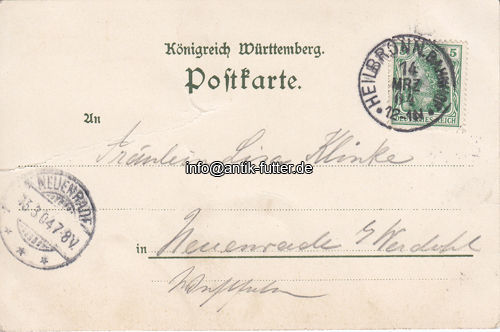 Königreich Württemberg.
Postkarte.
5
HEILBRONN BAHNHOF
14
MRZ
04
12-1N
DEUTSCHES REICH
An
Fräulein Lisa Klinke
info@antik-futter.de
NEUENRADE
15.3.04.7-8V.
in
Neuenrade b/ Werdohl
Westfalen